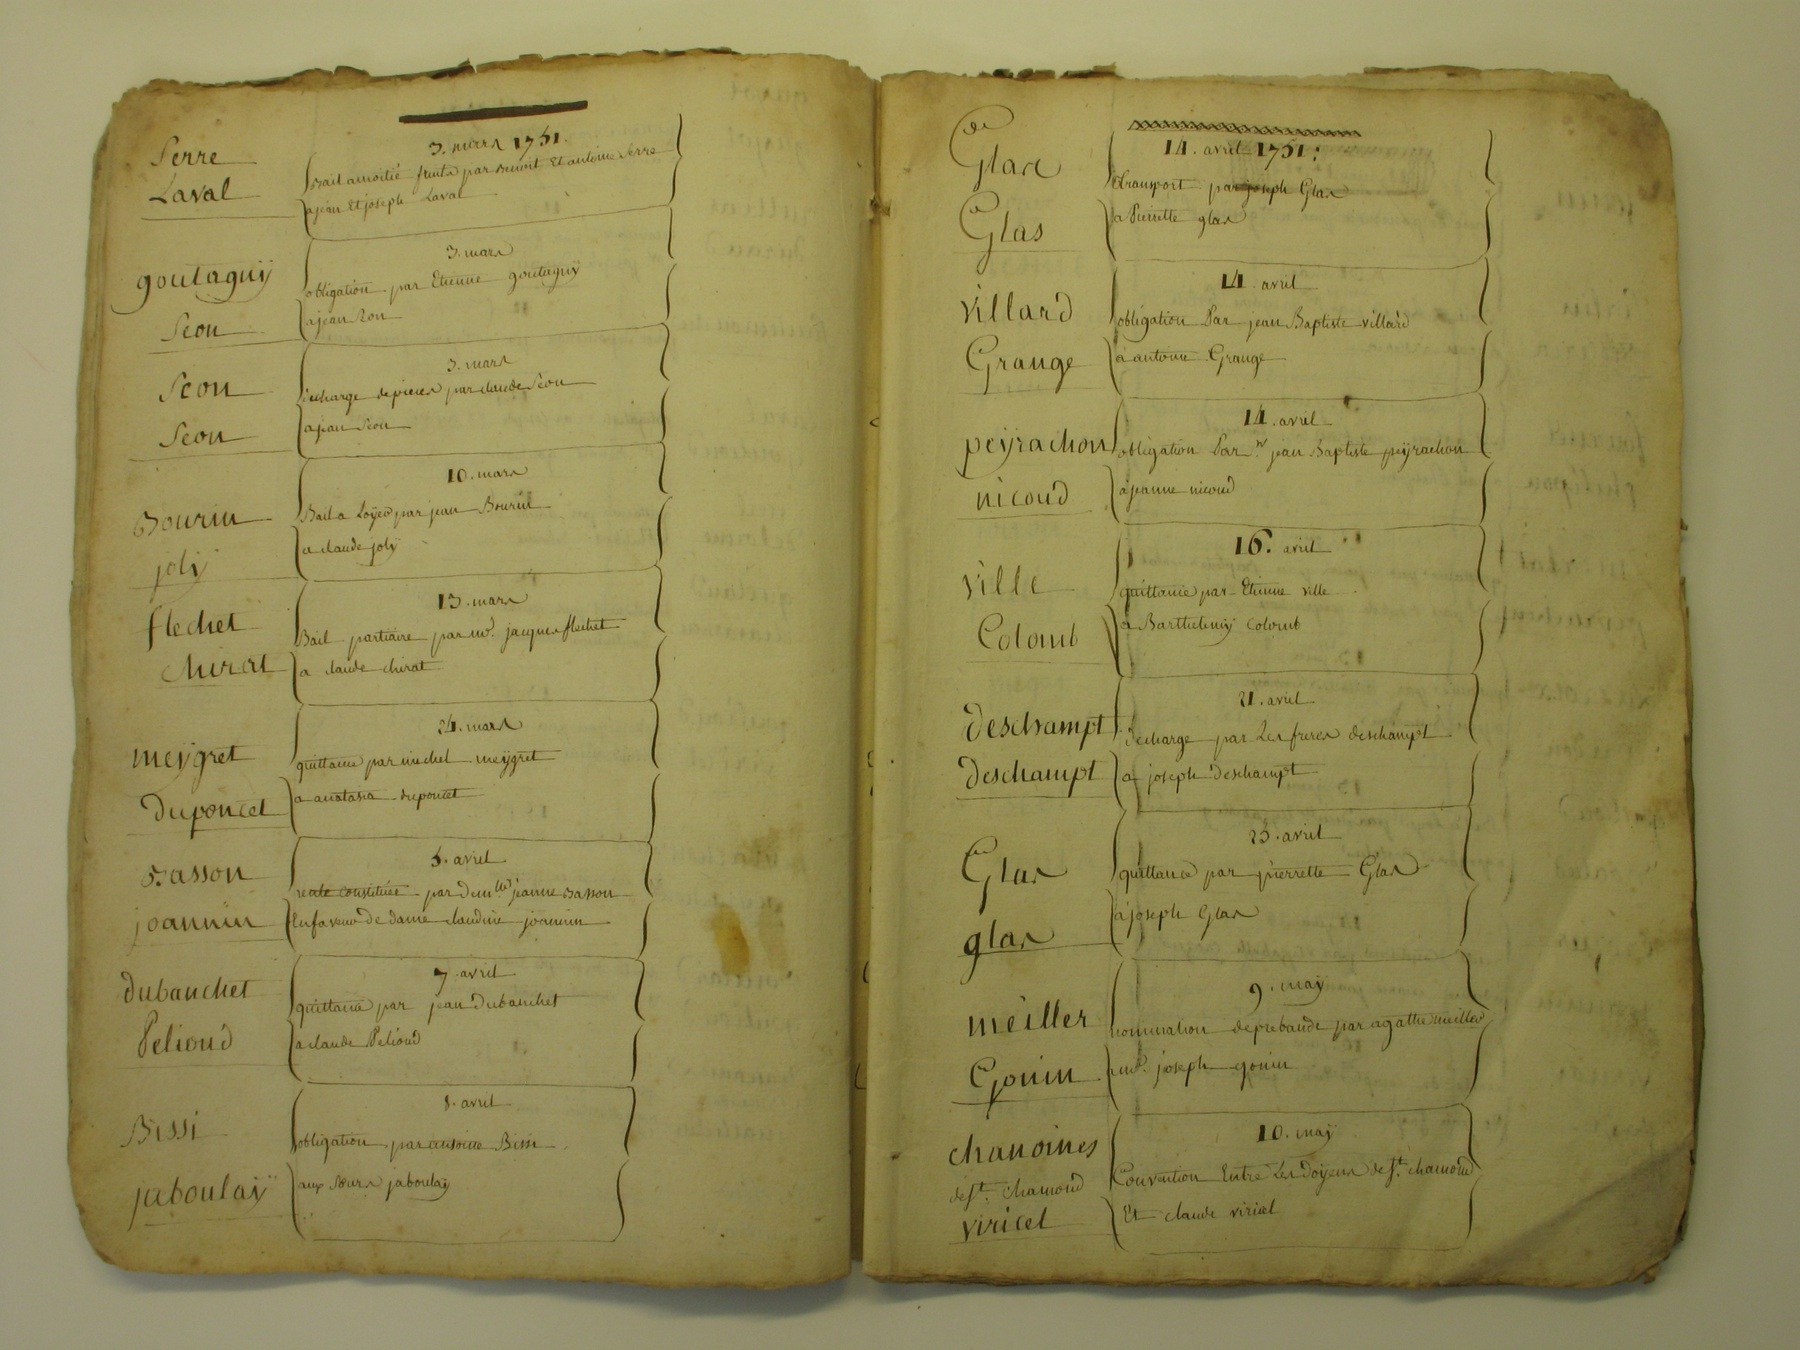 3. mars 1751.
Serre
Laval
Bail amoitié fruits par Benoit Et antoine Serre
a jean Et joseph Laval
3. mars
goutaguÿ
Seon
obligation par Etienne goutaguÿ
a jean Son
3. mars
Seon
Seon
decharge de pieces par claude Seon
a jean Seon
10. mars
Bourin
jolÿ
Bail a Loÿer par jean Bourin
a claude jolÿ
13. mars
flechet
Chirat
Bail partiaire par mr. jacques flechet
a claude chirat
24. mars
meÿgret
Duponcet
quittance par michel meÿgret
a anatasia duponcet
5. avril
Basson
joannin
rente constituée par demlle jeanne Basson
En faveur de dame claudine joannin
7. avril
dubanchet
Pelioud
quittance par jean Dubanchet
a claude Pelioud
8. avril
Bissi
jaboulaÿ
obligation par antoine Bissi
aux Sœurs jaboulaÿ
14. avril 1751:
Glas
Glas
transport par joseph Glas
a Pierrette glas
14. avril
villard
Grange
obligation Par jean Baptiste villard
a antoine Grange
14. avril
peÿrachon
nicoud
obligation Par Sr. jean Baptiste peÿrachon
a jeanne nicoud
16. avril
ville
Colomb
quittance par Etienne ville
a Barthelemÿ Colomb
21. avril
deschampt
deschampt
decharge par Les freres deschampt
a joseph Deschampt
23. avril
Glas
glas
quittance par pierrette Glas
a joseph Glas
9. maÿ
meiller
Gonin
nomination de prebande par agathe meiller
a mr. joseph gonin
10. maÿ
chanoines
de St. chamond
viricel
Convention Entre Les Doÿens de St. chamond
Et claude viricel